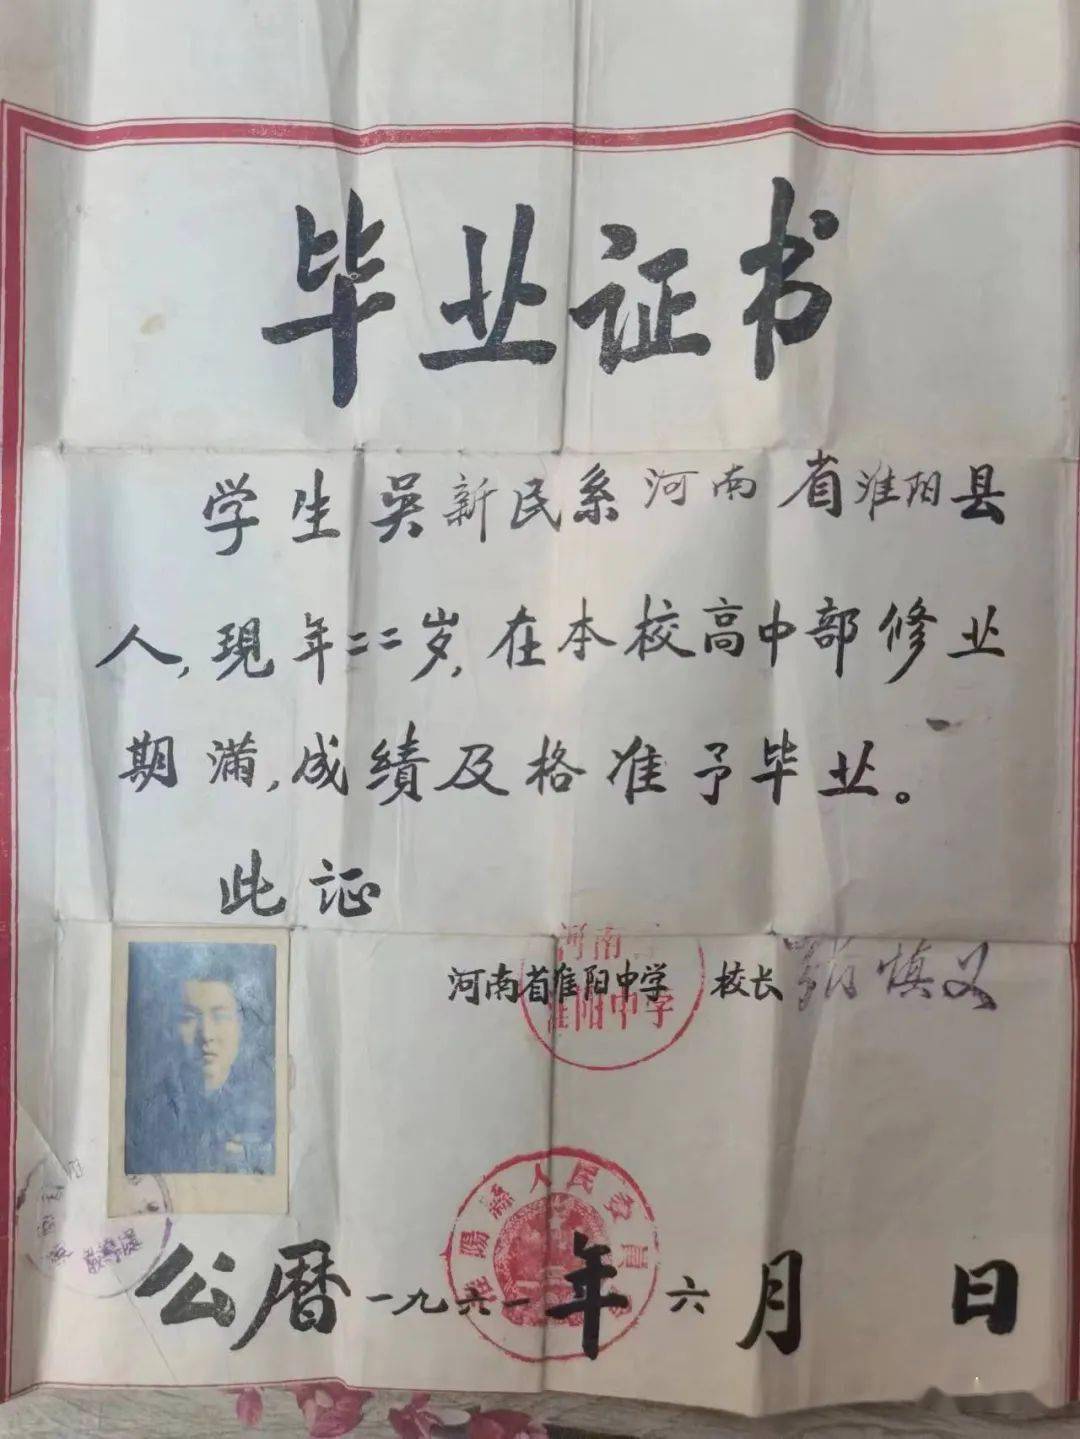 毕业证书
学生吳新民系河南省淮阳县
人,現年二二岁,在本校高中部修业
期满,成績及格准予毕业。
此证
河南省淮阳中学 校长 慎义
河南
淮阳中学
淮陽縣人民委員
公曆一九六一年六月 日